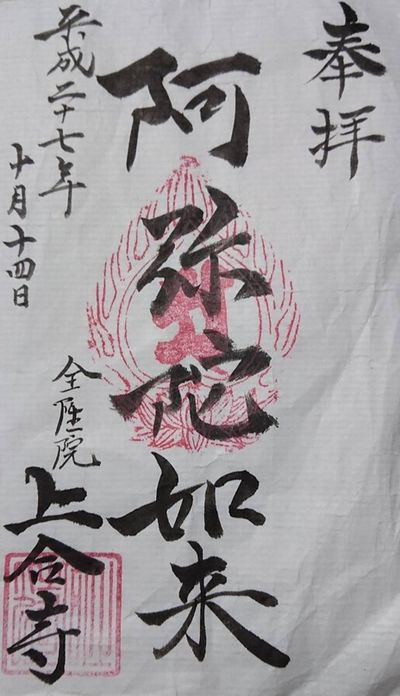 奉拝
阿弥陀如来
平成二十七年
十月十四日
上合寺